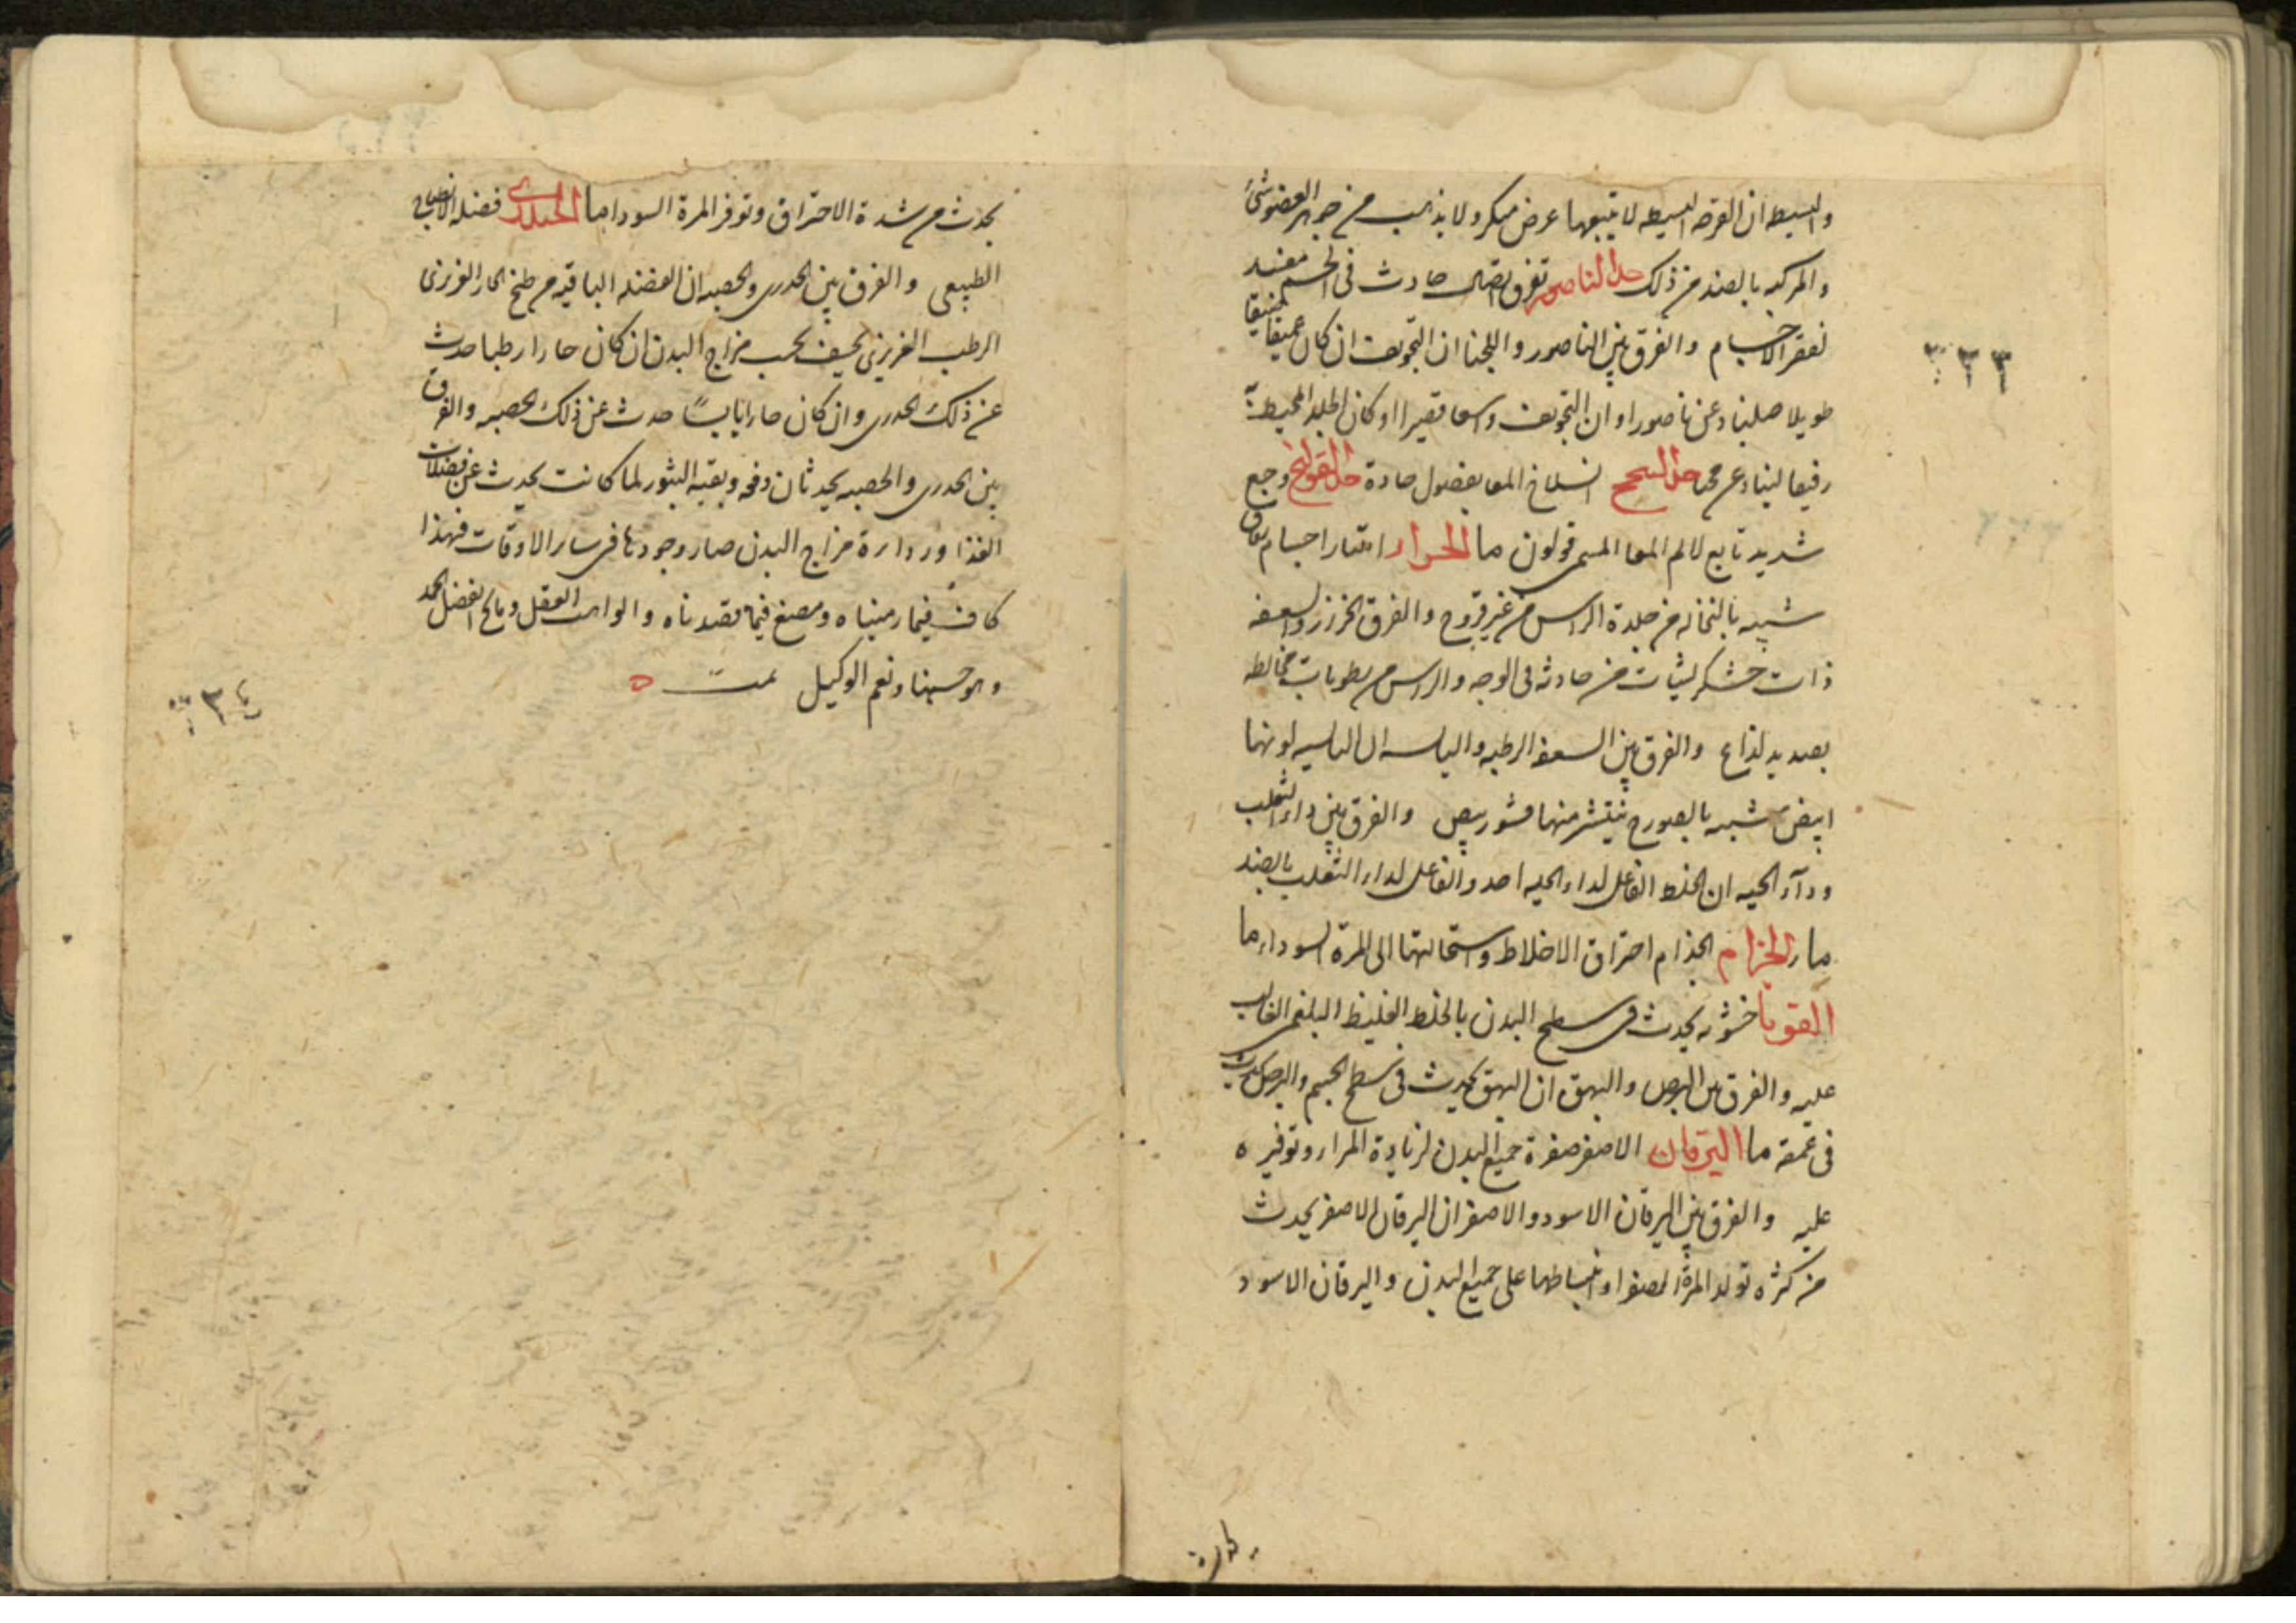 والبسيطه ان القرحه البسيطه لا يتبعها عرض منكر ولا يذهب من جوهر العضو شئ
والمركبه بالضد من ذلك حد الناصور تفرق اتصال حادث فى الجسم مفسد
لقعر الاجسام والفرق بين الناصور و ان التجويف ان كان عميقا ضيقا
طويلا صلبا دعى ناصورا وان التجويف واسعا قصيرا او كان الجلد المحيط به
رقيقا لينا دعى حد السحج انسلاخ المعا بفضول حادة حد القولنج وجع
شديد تابع لالم المعا المسمى قولون ما الحراز انتثار اجسام دقاق
شبيه بالنخاله من جلدة الراس من غير قروح والفرق الحزاز والسعفه
ذات خشكريشات حادثه فى الوجه والراس من رطوبات مخالطه
بصديد لذاع والفرق بين السعفه الرطبه واليابسه ان اليابسه لونها
ابيض شبيه ينتشر منها قشور بيض والفرق بين داء الثعلب
وداء الحيه ان الخلط الفاعل لداء الحيه احد والفاعل لداء الثعلب بالضد
ما الجزام الجذام احتراق الاخلاط واستحالتها الى المرة السوداء ما
القوبا خشونه يحدث فى سطح البدن بالخلط الغليظ البلغمى الغالب
عليه والفرق بين البرص والبهق ان البهق يحدث فى سطح الجسم والبرص يحدث
فى عمقه ما اليرقان الاصفر صفرة جميع البدن لزيادة المرار وتوفيره
عليه والفرق بين اليرقان الاسود والاصفر ان اليرقان الاصفر يحدث
من كثره تولد المرة الصفرا وانبساطها على جميع البدن واليرقان الاسود
٣٢٣
يحدث من شدة الاحتراق وتوفر المرة السودا ما الجدرى فضله
الطبيعى والفرق بين الجدرى والحصبه ان الفضله الباقيه من طبخ الحار الغريزى
الرطب الغريزى بحسب مزاج البدن ان كان حارا رطبا حدث
عن ذلك الجدرى وان كان حارا يابسًا حدث عن ذلك الحصبه والفرق
بين الجدرى والحصبه يحدثان دفعه وبقيه البثور لما كانت يحدث عن فضلات
الغذا ورداءة مزاج البدن صار وجودها فى ساير الاوقات فهذا
كاف فيما رمناه ومقنع فيما قصدناه والواهب العقل الحمد
وهو حسبنا ونعم الوكيل تمت ه
٣٢٤